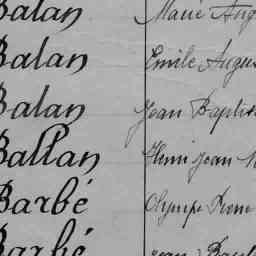 Balan Marie Aug
Balan Emile Augus
Balan Jean Baptis
Ballan Henri Jean
Barbé Olympe
Barbé Jean Bapt